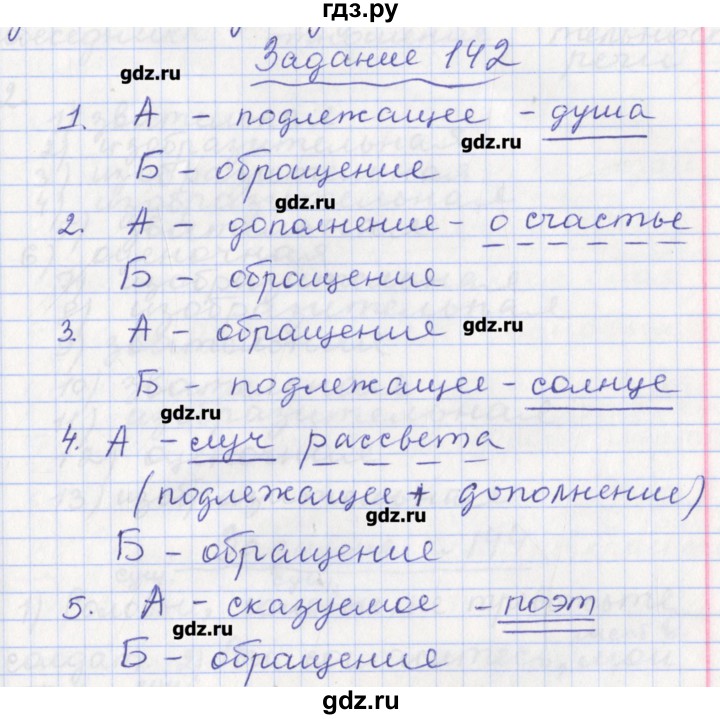 гдз.ру
Задание 142
gdz.ru
1. А – подлежащее – душа
gdz.ru
Б – обращение
gdz.ru
2. А – дополнение – о счастье
Б – обращение
3. А – обращение
gdz.ru
Б – подлежащее – солнце
gdz.ru
4. А – луч рассвета
(подлежащее + дополнение)
gdz.ru
Б – обращение
5. А – сказуемое – поэт
gdz.ru
Б – обращение
gdz.ru